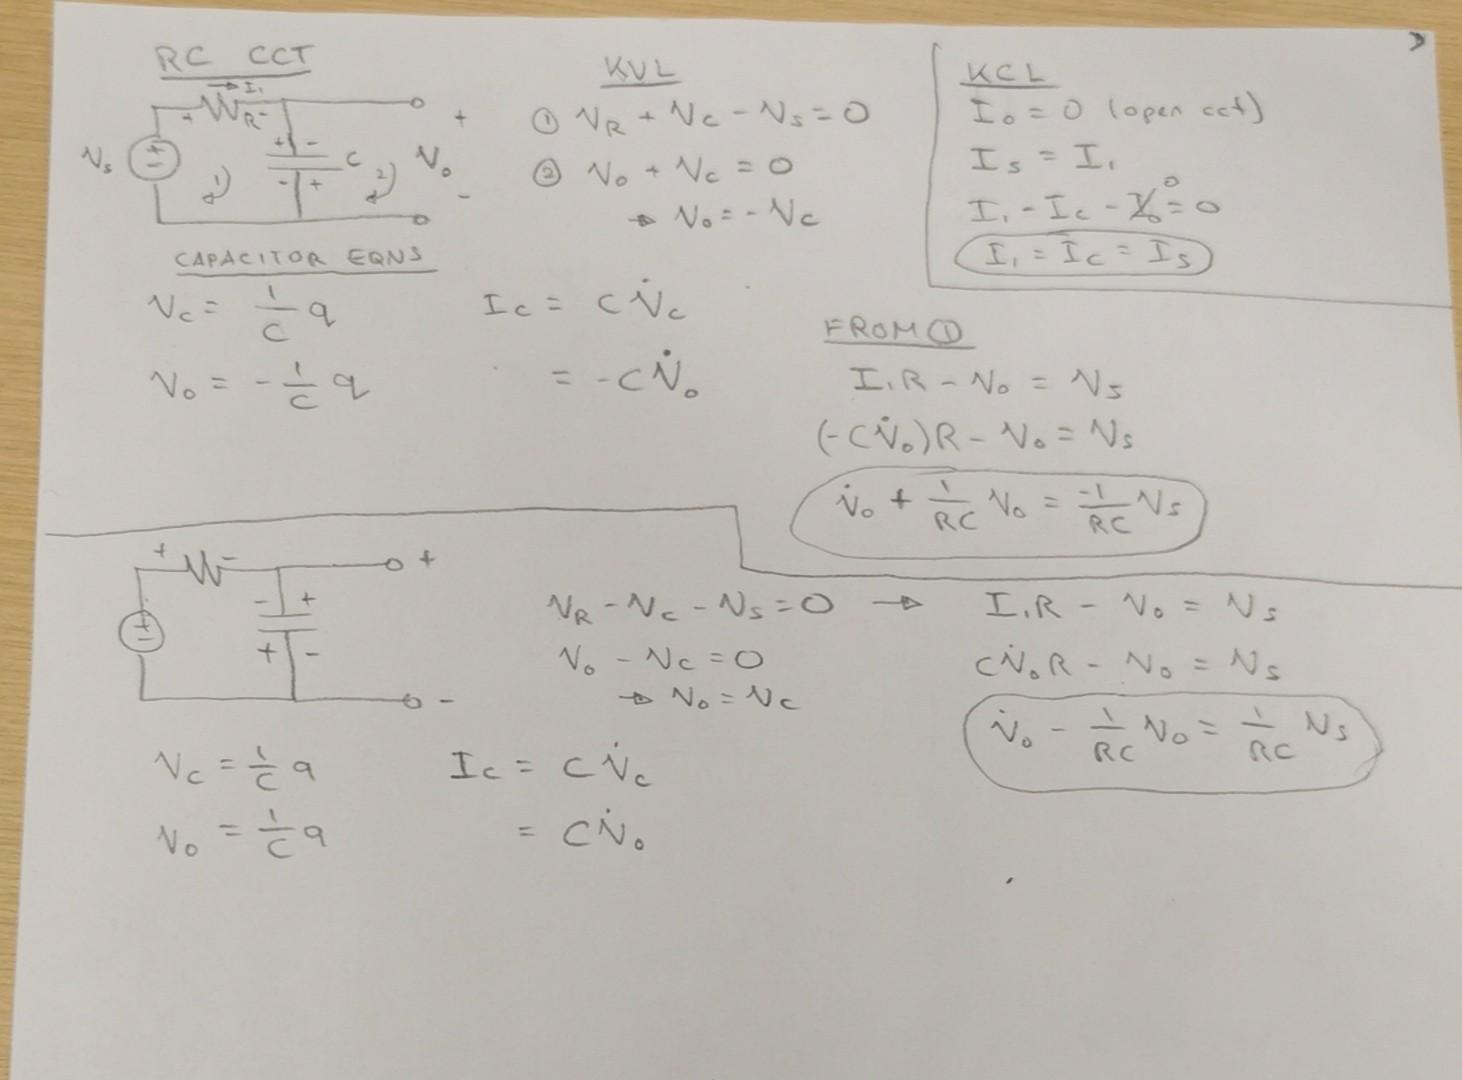 RC CCT
→ I₁
+ R -
Vs + -
1)
+ -
- +
C
2)
+
Vo
-
KVL
① VR + Vc - Vs = 0
② Vo + Vc = 0
→ Vo = - Vc
KCL
Io = 0 (open cct)
Is = I₁
I₁ - Ic - Io = 0
0
I₁ = Ic = Is
CAPACITOR EQNS
Vc = 1/C q
Vo = - 1/C q
Ic = C V̇c
= - C V̇o
FROM ①
I₁R - Vo = Vs
(-C V̇o)R - Vo = Vs
V̇o + 1/RC Vo = -1/RC Vs
+ -
+
+ -
- +
+ -
-
VR - Vc - Vs = 0 → I₁R - Vo = Vs
Vo - Vc = 0
→ Vo = Vc
C V̇o R - Vo = Vs
V̇o - 1/RC Vo = 1/RC Vs
Vc = 1/C q
Vo = 1/C q
Ic = C V̇c
= C V̇o